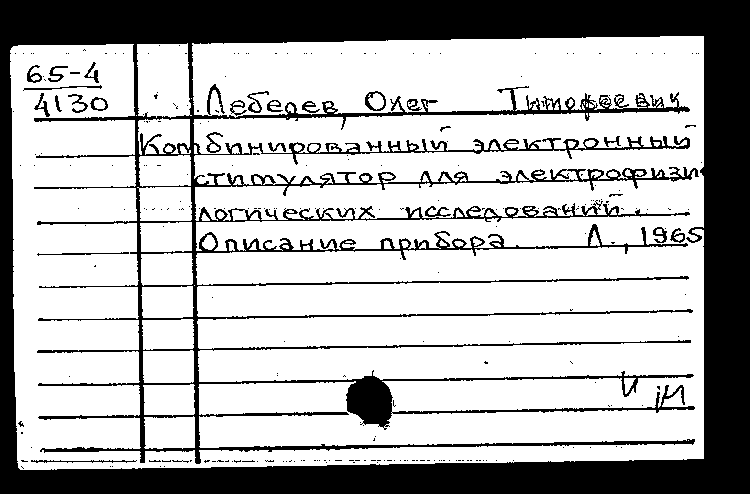 65-4
4130
Лебедев, Олег Тимофеевич
Комбинированный электронный
стимулятор для электрофизи
логических исследований.
Описание прибора. Л., 1965